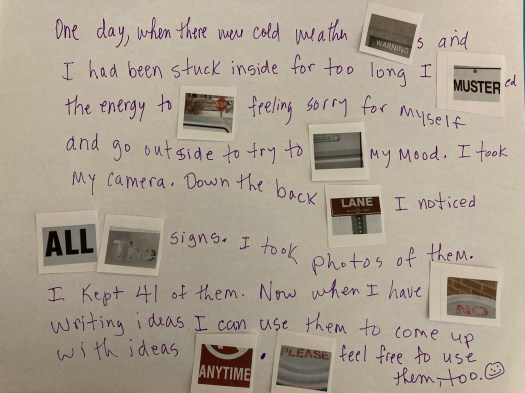 One day, when there were cold weather WARNING s and
I had been stuck inside for too long I MUSTER ed
the energy to feeling sorry for myself
and go outside to try to my mood. I took
my camera. Down the back LANE I noticed
ALL THE signs. I took photos of them.
I kept 41 of them. Now when I have NO
writing ideas I can use them to come up
with ideas ANYTIME. PLEASE feel free to use
them, too.